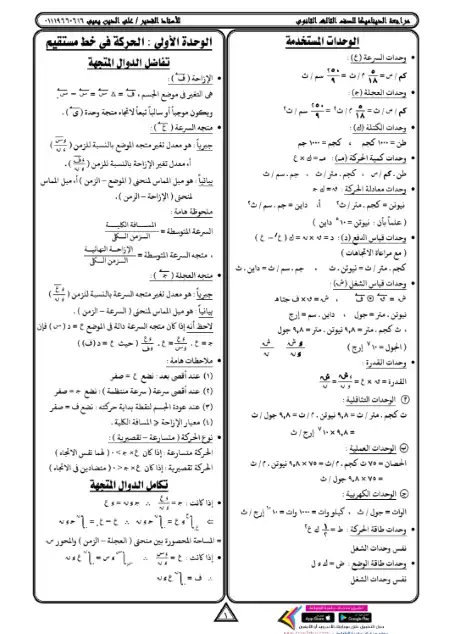 مراجعة الديناميكا للصف الثالث الثانوي
الأستاذ القدير / على الدين يحيى ٠١١١٩٩٦٠٦١٦
الوحدات المستخدمة
• وحدات السرعة (ع) :
كم / س = ٥/١٨ م / ث = ٢٥٠/٩ سم / ث
• وحدات العجلة (جـ) :
كم / س / ث = ٥/١٨ م / ث٢ = ٢٥٠/٩ سم / ث٢
• وحدات الكتلة (ك) :
طن = ١٠٠٠ كجم ، كجم = ١٠٠٠ جم
• وحدات كمية الحركة (مـ) : مـ = ك × ع
طن . كم / س ، كجم . متر / ث ، جم . سم / ث
• وحدات معادلة الحركة : ق = ك جـ
نيوتن = كجم . متر / ث٢ أ، داين = جم . سم / ث٢
( علماً بأن : نيوتن = ١٠٥ داين )
• وحدات قياس الدفع (د) : د = ق × ن = ك ( ع/ − ع )
( مع مراعاة الاتجاهات )
كجم . متر / ث = نيوتن . ث ، جم . سم / ث = داين . ث
• وحدات قياس الشغل (ش) :
نيوتن . متر = جول ، داين . سم = إرج
، ث كجم . متر = ٩,٨ نيوتن . متر = ٩,٨ جول
( الجول = ١٠٧ إرج )
• وحدات القدرة :
القدرة = ق × ع = ش/ن = وش/ون
الوحدات التثاقلية :
ث كجم . متر / ث = ٩,٨ نيوتن . م / ث = ٩,٨ جول / ث
= ٩,٨ × ١٠٧ إرج / ث
الوحدات العملية :
الحصان = ٧٥ ث كجم . م / ث = ٧٥ × ٩,٨ نيوتن . م / ث
= ٧٥ × ٩,٨ جول / ث
الوحدات الكهربية :
الوات = جول / ث ، كيلو وات = ١٠٠٠ وات = ١٠١٠ إرج / ث
• وحدات طاقة الحركة : ط = ١/٢ ك ع٢
نفس وحدات الشغل
• وحدات طاقة الوضع : ض = ك د ل
نفس وحدات الشغل
الوحدة الأولى : الحركة فى خط مستقيم
تفاضل الدوال المتجهة
• الإزاحة (ف) :
هى التغير فى موضع الجسم ، ف = Δس = س − س.
ويكون موجباً أو سالباً تبعاً لاتجاه متجه وحدة (ى) .
• متجه السرعة (ع) :
جبرياً : هو معدل تغير متجه الموضع بالنسبة للزمن (وس/ون)
أ، معدل تغير الإزاحة بالنسبة للزمن (وف/ون)
بيانياً : هو ميل المماس لمنحنى ( الموضع − الزمن ) أ، ميل المماس
لمنحنى ( الإزاحة − الزمن ) .
• ملحوظة هامة :
السرعة المتوسطة = المسافة الكلية / الزمن الكلى
، متجه السرعة المتوسطة = الإزاحة النهائية / الزمن الكلى
• متجه العجلة (جـ) :
جبرياً : هو معدل تغير متجه السرعة بالنسبة للزمن (وع/ون)
بيانياً : هو ميل المماس لمنحنى ( السرعة − الزمن ) .
لاحظ أنه إذا كان متجه السرعة دالة فى الموضع ع = د (س) فإن
جـ = ع . وع/وس = ع . وع/وف ( حيث ع = د(ف) )
• ملاحظات هامة :
(١) عند أقصى بعد : نضع ع = صفر
(٢) عند أقصى سرعة ( سرعة منتظمة ) : نضع جـ = صفر
(٣) عند عودة الجسم لنقطة بداية حركته : نضع ف = صفر
(٤) معيار الإزاحة ≤ المسافة الكلية .
• نوع الحركة ( متسارعة − تقصيرية ) :
الحركة متسارعة : إذا كان ع × جـ > ٠ ( لهما نفس الاتجاه )
الحركة تقصيرية : إذا كان ع × جـ < ٠ ( متضادين فى الاتجاه )
تكامل الدوال المتجهة
• إذا كانت : جـ = وع/ون ∴ جـ ون = وع
= المساحة المحصورة بين منحنى ( العجلة − الزمن ) والمحور ن
• إذا كانت : ع = وس/ون
١